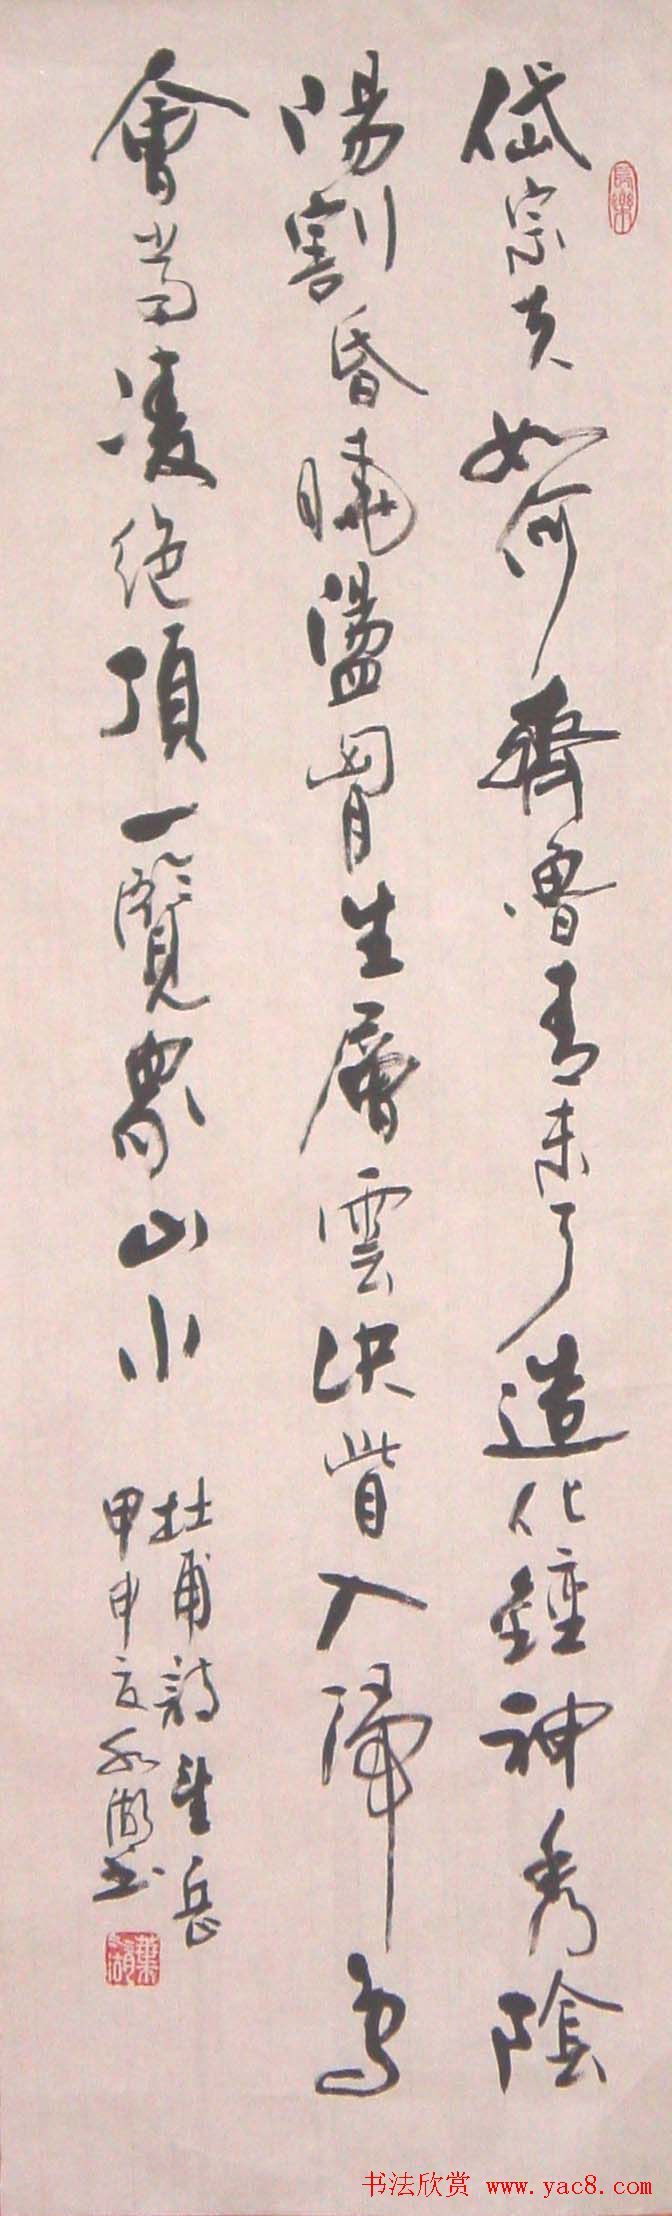 岱宗夫如何齊魯青未了造化鍾神秀陰
陽割昏曉盪胸生層雲決眥入歸鳥
會當凌絕頂一覽眾山小
杜甫詩望岳
甲申夏永湖書
長樂
書法欣赏 www.yac8.com